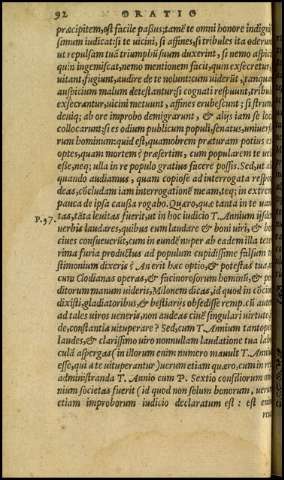 92 ORATIO
præcipitem, est facile passus; tam te omni honore indignis
simum iudicat; si te uicini, si affines, si tribules ita oderunt
ut repulsam tuā triumphū suum duxerint, si nemo aspicit
quin ingemiscat, nemo mentionem facit, quin exsecretur
uitant, fugiunt, audire de te nolunt: cum uiderūt, tanquā
auspicium malum detestantur; si cognati respuunt, tribules
exsecrantur, uicini metuunt, affines erubescunt; si strum
deniq; ab ore improbo demigrarunt, & alijs iam se loc
collocarunt: si es odium publicum populi, senatus, uniuers
rum hominum: quid est, quamobrem præturam potius ex
optes, quam mortem? præsertim, cum popularem te uel
esse, neq; ulla in re populo gratius facere possis. Sed, ut al
quando audiamus, quam copiose ad interrogata respō
deas, cōcludam iam interrogationē meam, teq; in extrem
pauca de ipsa causa rogabo. Quæro, quæ tanta in te uan
P. 37. tas, tāta leuitas fuerit, ut in hoc iudicio T. Annium ijsdē
uerbis laudares, quibus eum laudare & boni uiri, & bo
ciues consueuerūt, cum in eundē nuper ab eadem illa tete
rima furia productus ad populum cupidissime falsum te
stimonium dixeris? An erit hæc optio, & potestas tua,
cum Clodianas operas, & facinorosorum hominū, & per
ditorum manum uideris, Milonem dicas, id quod in cōcion
dixisti, gladiatoribus, & bestiarijs obsedisse remp. cū aute
ad tales uiros ueneris, non audeas ciuē singulari uirtute
de, constantia uituperare? Sed, cum T. Annium tantop
laudes, & clarissimo uiro nonnullam laudatione tua lab
culā aspergas (in illorum enim numero mauult T. Ann
esse, qui a te uituperantur) uerum etiam quæro, cum in rep
administranda T. Annio cum P. Sextio consiliorum om
nium societas fuerit (id quod non solum bonorum, ueru
etiam improborum iudicio declaratum est: est en